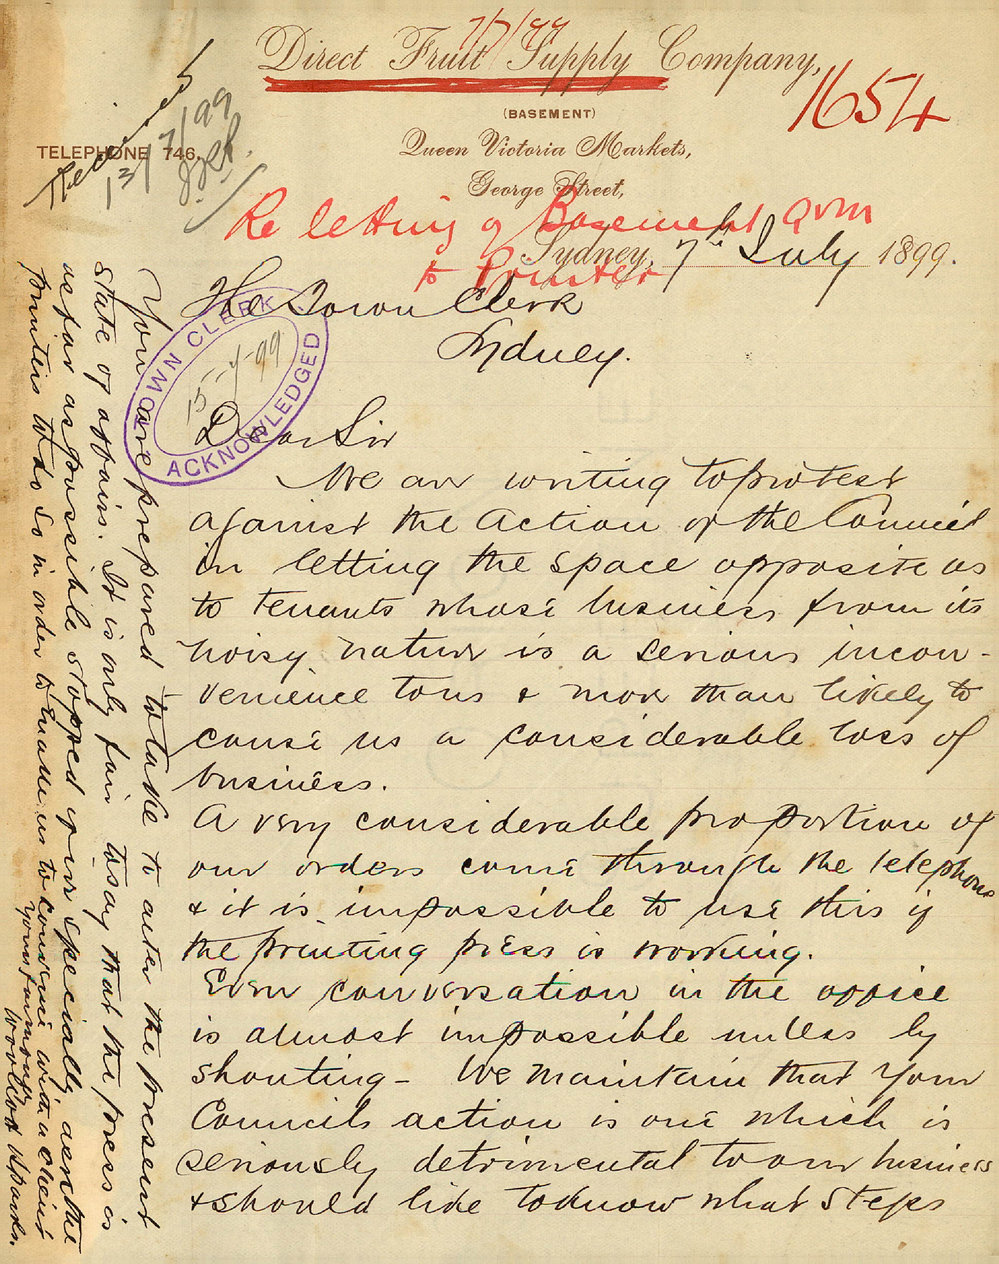 7/7/99
Direct Fruit Supply Company,
1654
(BASEMENT)
TELEPHONE 746.
Queen Victoria Markets,
George Street,
Received
13/7/99
Re letting of Basement arm
to Printer
Sydney, 7th July 1899.
The Town Clerk
Sydney.
TOWN CLERK
15-7-99
ACKNOWLEDGED
Dear Sir
We are writing to protest
against the action of the Council
in letting the space opposite us
to tenants whose business from its
noisy nature is a serious incon-
venience to us & more than likely to
cause us a considerable loss of
business.
A very considerable proportion of
our orders come through the telephone
& it is impossible to use this if
the printing press is working.
Even conversation in the office
is almost impossible unless by
shouting - We maintain that your
Councils action is one which is
seriously detrimental to our business
& should like to know what steps
You are prepared to take to alter the present
state of affairs. It is only fair to say that the press is
as far as possible stopped if we specially ask the
printers to do so in order to enable us to converse with a client
Yours faithfully